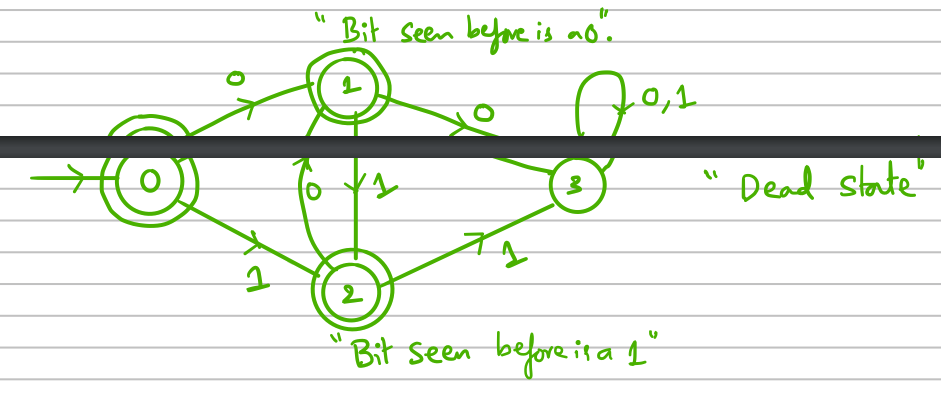 "Bit seen before is a 0".
0
1
0
0,1
0
0
1
3
"Dead state"
1
2
1
"Bit seen before is a 1"